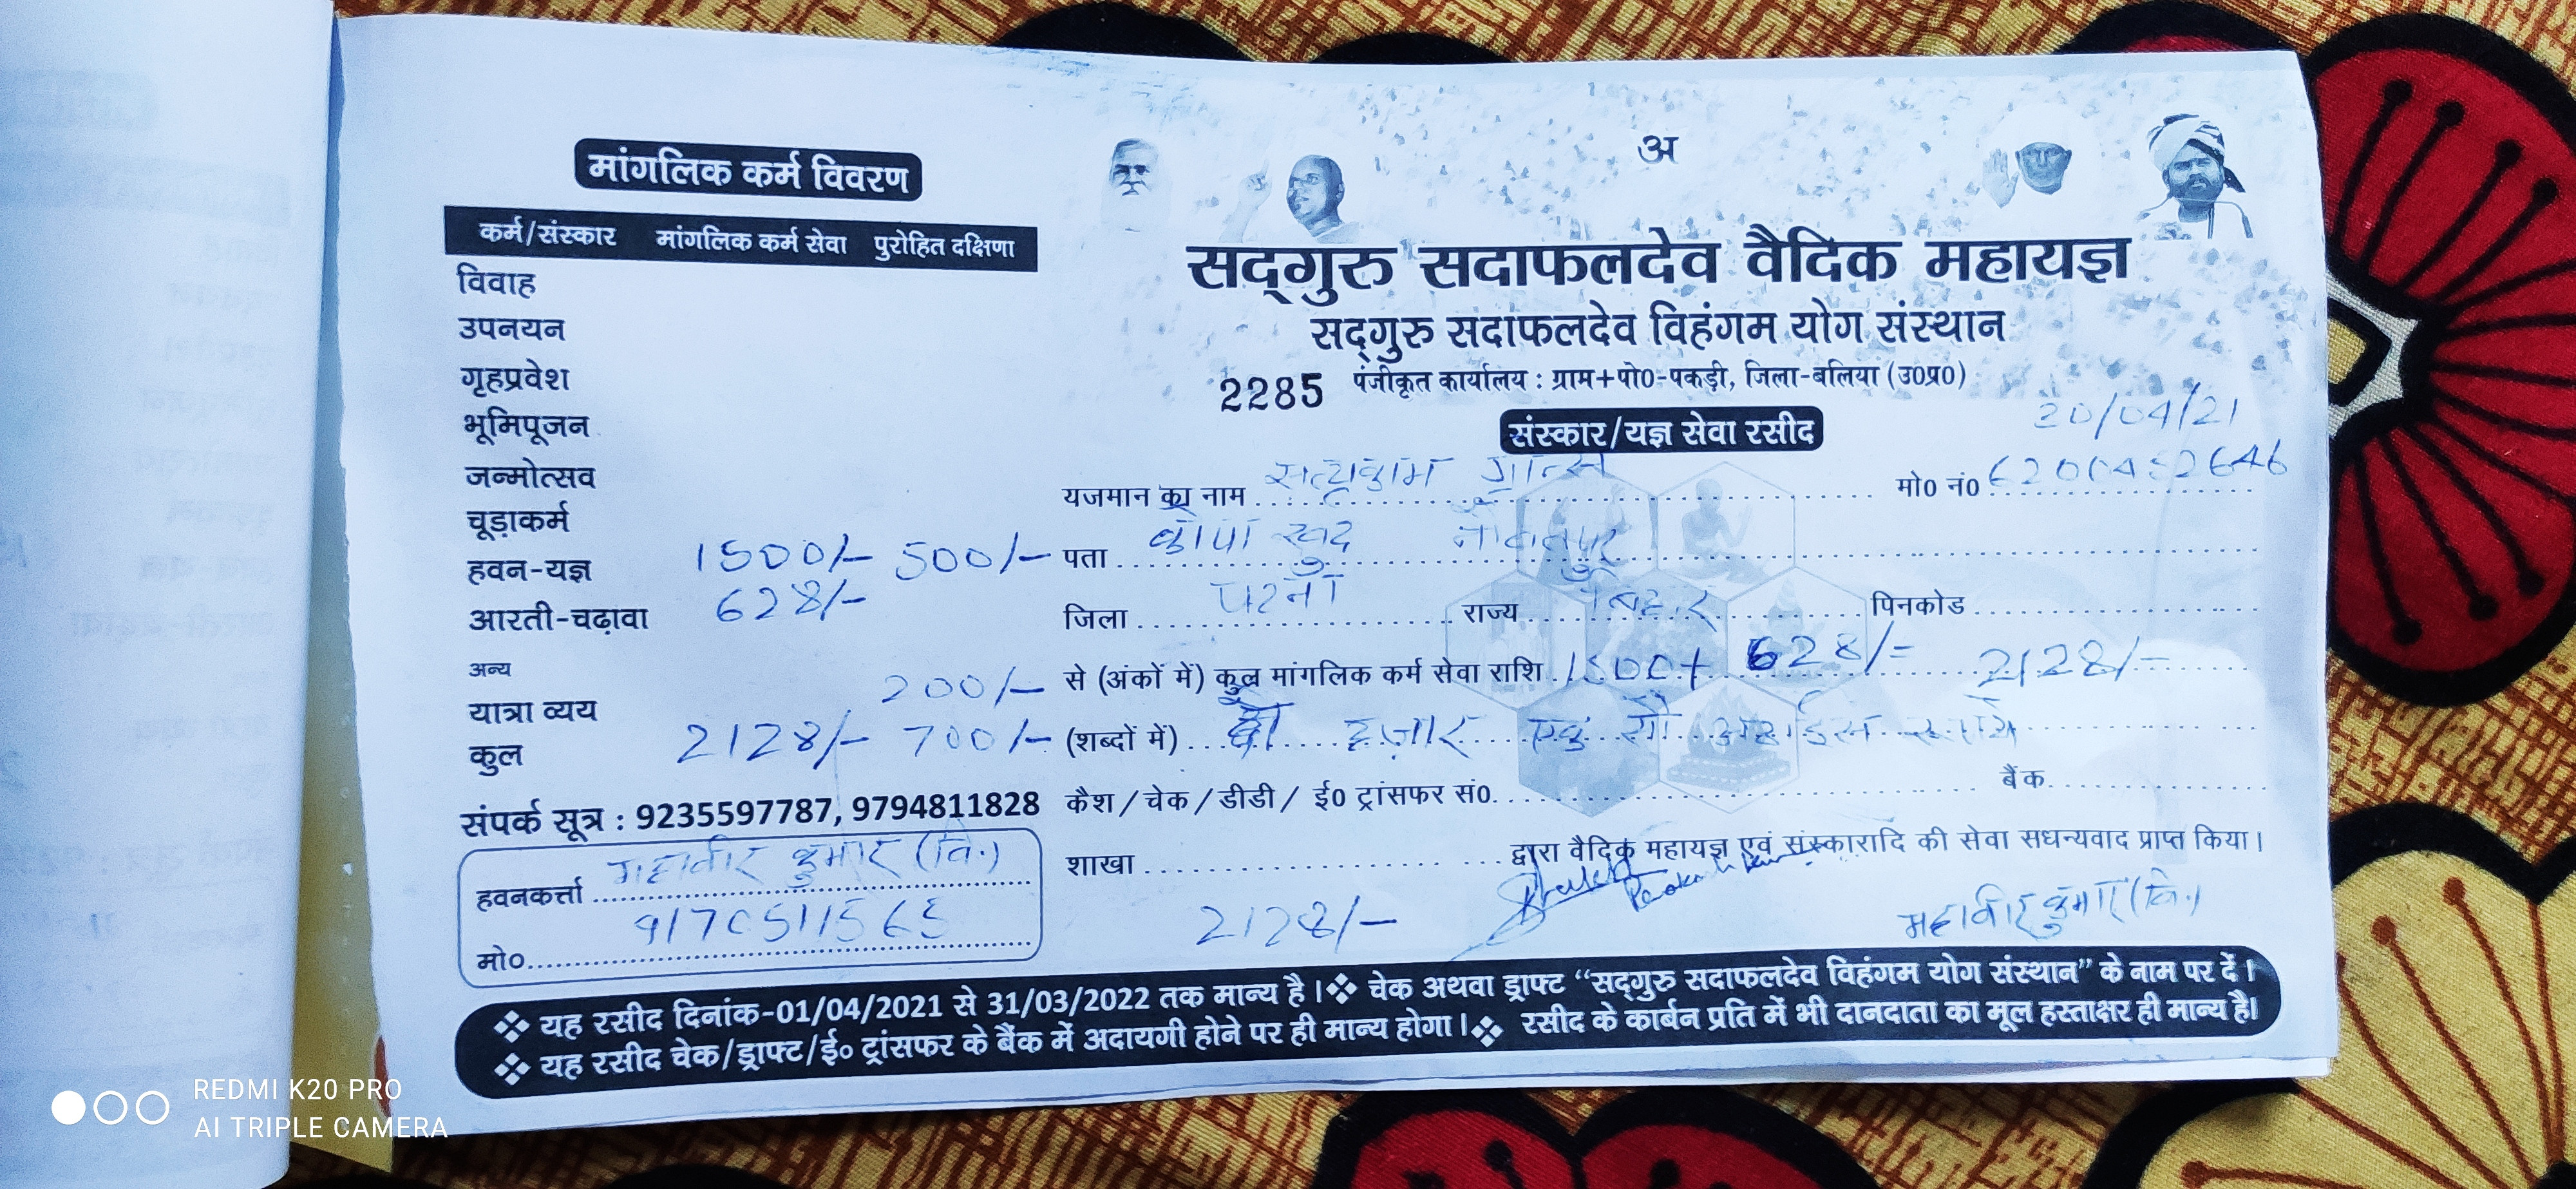 मांगलिक कर्म विवरण
कर्म/संस्कार मांगलिक कर्म सेवा पुरोहित दक्षिणा
विवाह
उपनयन
गृहप्रवेश
भूमिपूजन
जन्मोत्सव
चूड़ाकर्म
हवन-यज्ञ 1500/- 500/-
आरती-चढ़ावा 628/-
अन्य
यात्रा व्यय 200/-
कुल 2128/- 700/-
संपर्क सूत्र : 9235597787, 9794811828
हवनकर्त्ता महावीर कुमार (वि.)
मो० 9170511565
अ
सद्गुरु सदाफलदेव वैदिक महायज्ञ
सद्गुरु सदाफलदेव विहंगम योग संस्थान
2285 पंजीकृत कार्यालय : ग्राम+पो0-पकड़ी, जिला-बलिया (उ0प्र0)
20/04/21
संस्कार/यज्ञ सेवा रसीद
यजमान का नाम सत्यकाम मो0 नं0
पता खुर्द
जिला पटना राज्य बिहार पिनकोड
से (अंकों में) कुल मांगलिक कर्म सेवा राशि 1500+ 628/= 2128/-
(शब्दों में) दो हज़ार एक सौ अठाईस रूपये
कैश / चेक / डीडी / ई0 ट्रांसफर सं0. बैंक
शाखा द्वारा वैदिक महायज्ञ एवं संस्कारादि की सेवा सधन्यवाद प्राप्त किया।
2128/- महावीर कुमार (वि.)
❖ यह रसीद दिनांक-01/04/2021 से 31/03/2022 तक मान्य है। ❖ चेक अथवा ड्राफ्ट “सद्गुरु सदाफलदेव विहंगम योग संस्थान” के नाम पर दें।
❖ यह रसीद चेक/ड्राफ्ट/ई० ट्रांसफर के बैंक में अदायगी होने पर ही मान्य होगा। ❖ रसीद के कार्बन प्रति में भी दानदाता का मूल हस्ताक्षर ही मान्य है।
REDMI K20 PRO
AI TRIPLE CAMERA